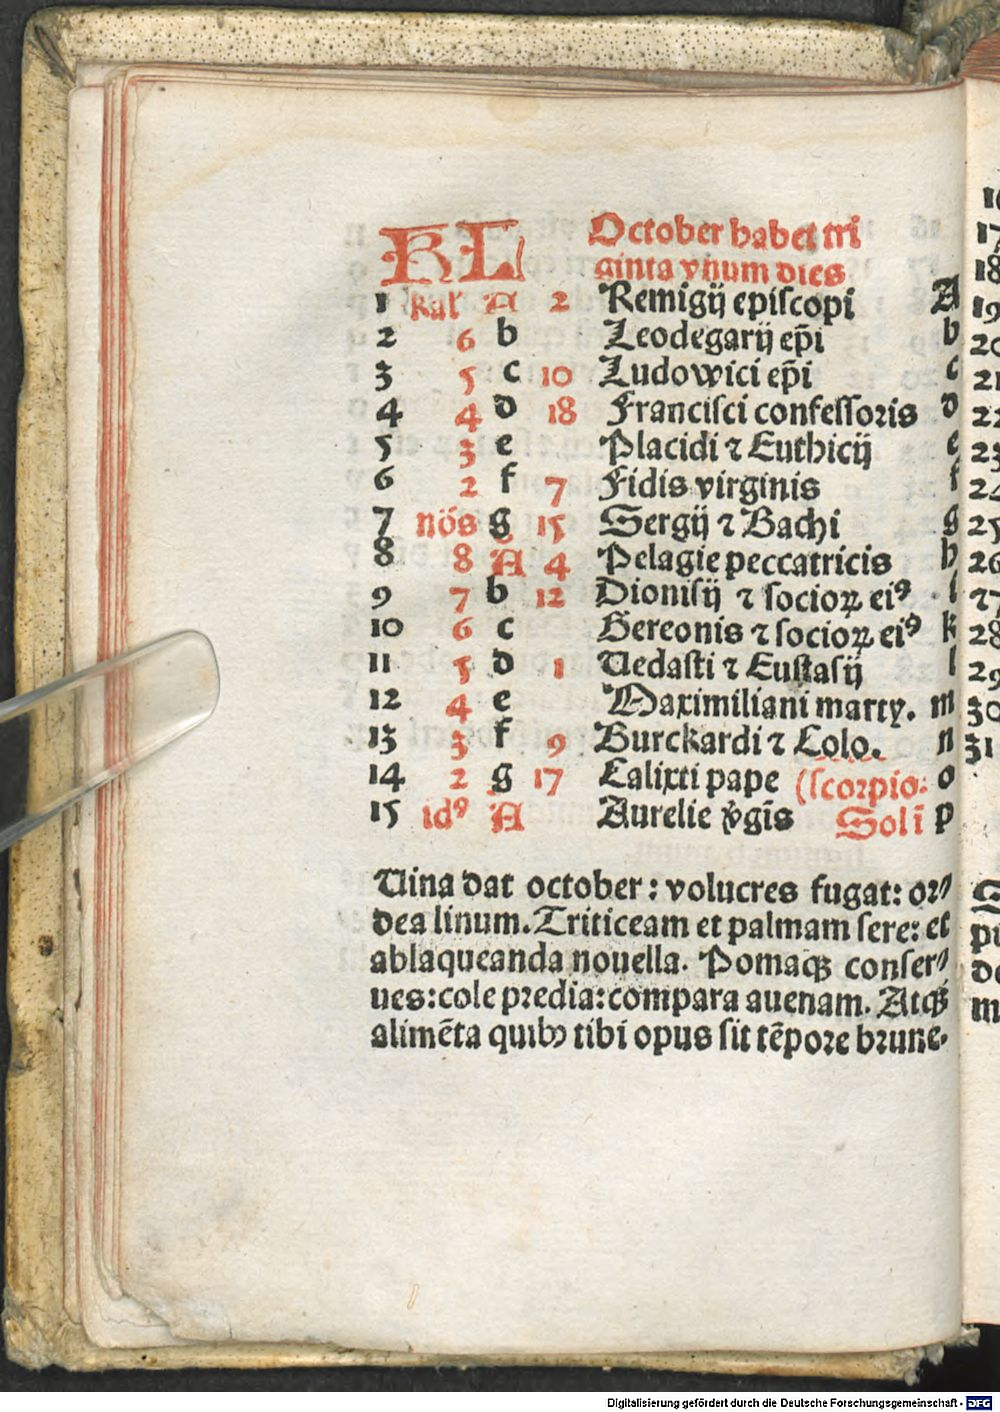 KL October habet tri
ginta vnum dies
1 Kal' A 2 Remigij episcopi A
2 6 b Leodegarij ep̄i b
3 5 c 10 Ludowici ep̄i c
4 4 d 18 Francisci confessoris d
5 3 e Placidi ⁊ Euthicij e
6 2 f 7 Fidis virginis f
7 nōs g 15 Sergij ⁊ Bachi g
8 8 A 4 Pelagie peccatricis h
9 7 b 12 Dionisij ⁊ socioꝝ eiꝰ i
10 6 c Gereonis ⁊ socioꝝ eiꝰ k
11 5 d 1 Vedasti ⁊ Eustasij l
12 4 e Maximiliani marty. m
13 3 f 9 Burckardi ⁊ Lolo. n
14 2 g 17 Calixti pape (scorpio: o
15 idꝰ A Aurelie v̄gīs Solī p
Vina dat october: volucres fugat: or⸗
dea linum. Triticeam et palmam sere: et
ablaqueanda nouella. Pomaqꝫ conser⸗
ues: cole predia: compara auenam. Atqꝫ
alimēta quibꝰ tibi opus sit tēpore brume.
16
17
18
19
20
21
22
23
24
25
26
27
28
29
30
31
Digitalisierung gefördert durch die Deutsche Forschungsgemeinschaft - DFG